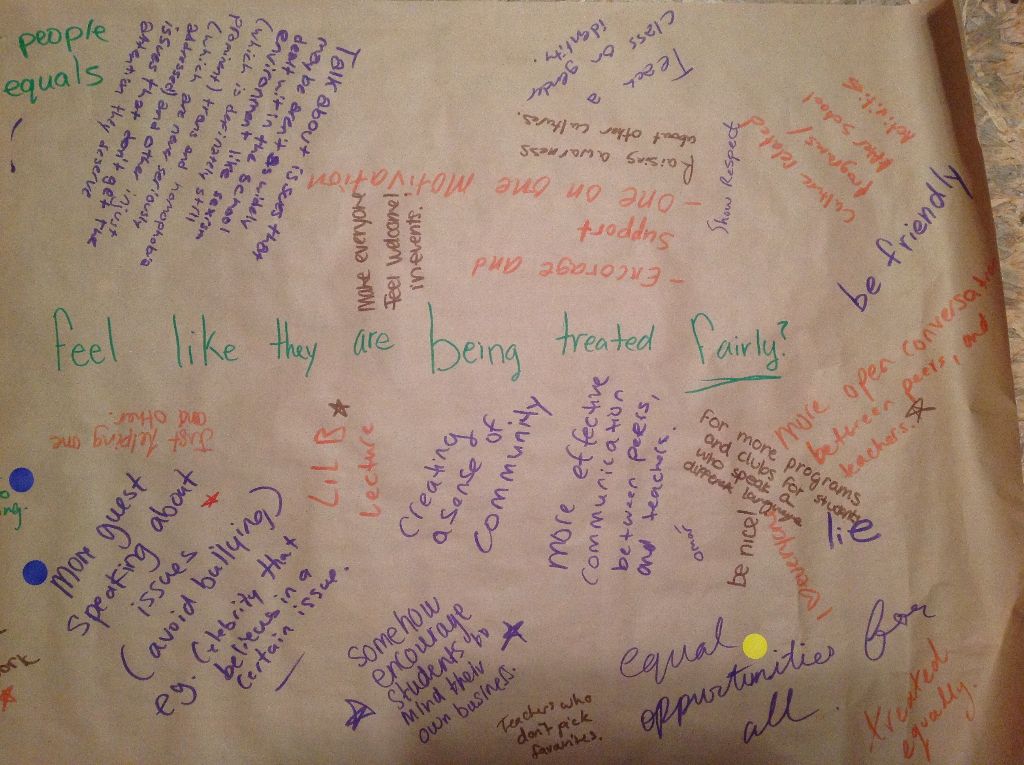 people
equals
Talk about issues that
may be aren't as widely
dealt with in the school
environment like sexism
(which is definately still
prominent) trans and homophobia
(which are never seriously
addressed) and other
issues that don't get the
attention they deserve
Teach a
class on gender
identity.
Raising awarness
about other cultures.
Show Respect
culture related
programs/
After school
Activities
be friendly
- Encorage and
Support
- one on one motivation
Make everyone
feel welcome!
in events.
feel like they are being treated fairly?
more open conversation
between peers, and
teachers.
Just helping one
and other.
LIL B
Lecture
Creating
a sense of
community
more effective
communication
between peers,
and teachers.
For more programs
and clubs for students
who speak a
different language
be nice!
lie
More guest
speaking about
issues
(avoid bullying)
eg. Celebrity that
believes in a
certain issue.
somehow
encourage
students to
mind their
own business.
Teachers who
don't pick
favourites.
equal
oppurtunities for
all.
treated
equally.